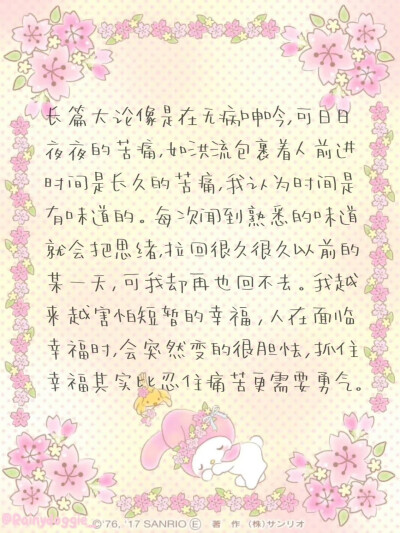 长篇大论像是在无病呻吟,可日日
夜夜的苦痛,如洪流包裹着人前进
时间是长久的苦痛,我认为时间是
有味道的。每次闻到熟悉的味道
就会把思绪,拉回很久很久以前的
某一天,可我却再也回不去。我越
来越害怕短暂的幸福,人在面临
幸福时,会突然变的很胆怯,抓住
幸福其实比忍住痛苦更需要勇气。
©'76, '17 SANRIO Ⓔ 著 作 (株)サンリオ